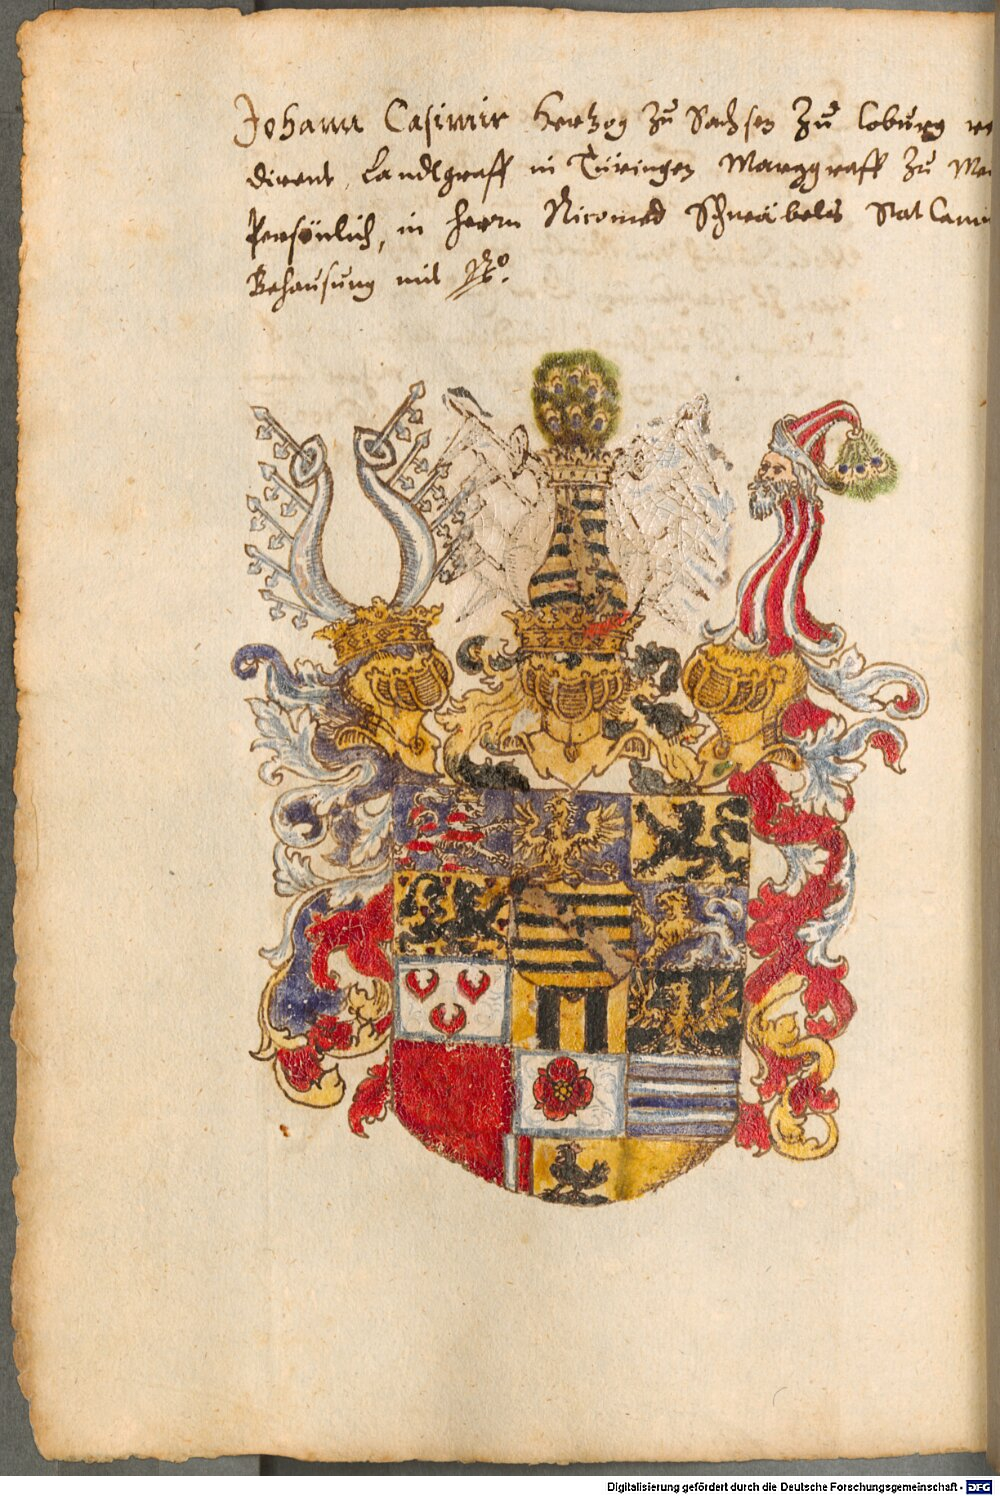 Johann Casimir Hertzog zu Sachsen zu Coburg re
dirent, Landtgraff in Türingen Marggraff zu Mei
Persönlich, in herrn Nicomed Schwäbels Stat Cam
Behausung mit
Digitalisierung gefördert durch die Deutsche Forschungsgemeinschaft - DFG